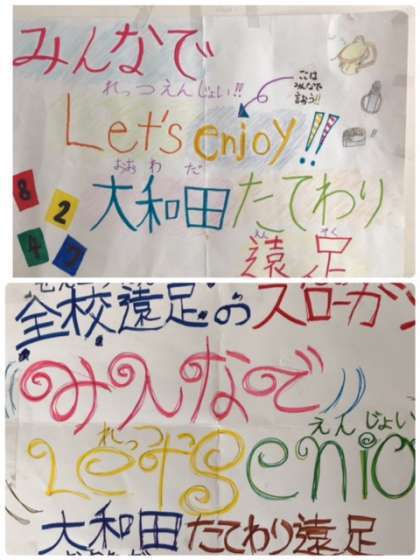 みんなで
れっつえんじょい!!
ここは
みんなで
言おう!!
Let's enjoy!!
おお わ だ
大和田たてわり
えん そく
遠足
8
2
4
全校遠足のスローガン
みんなで
えんじょい
れっつ
Let's enjo
大和田たてわり遠足